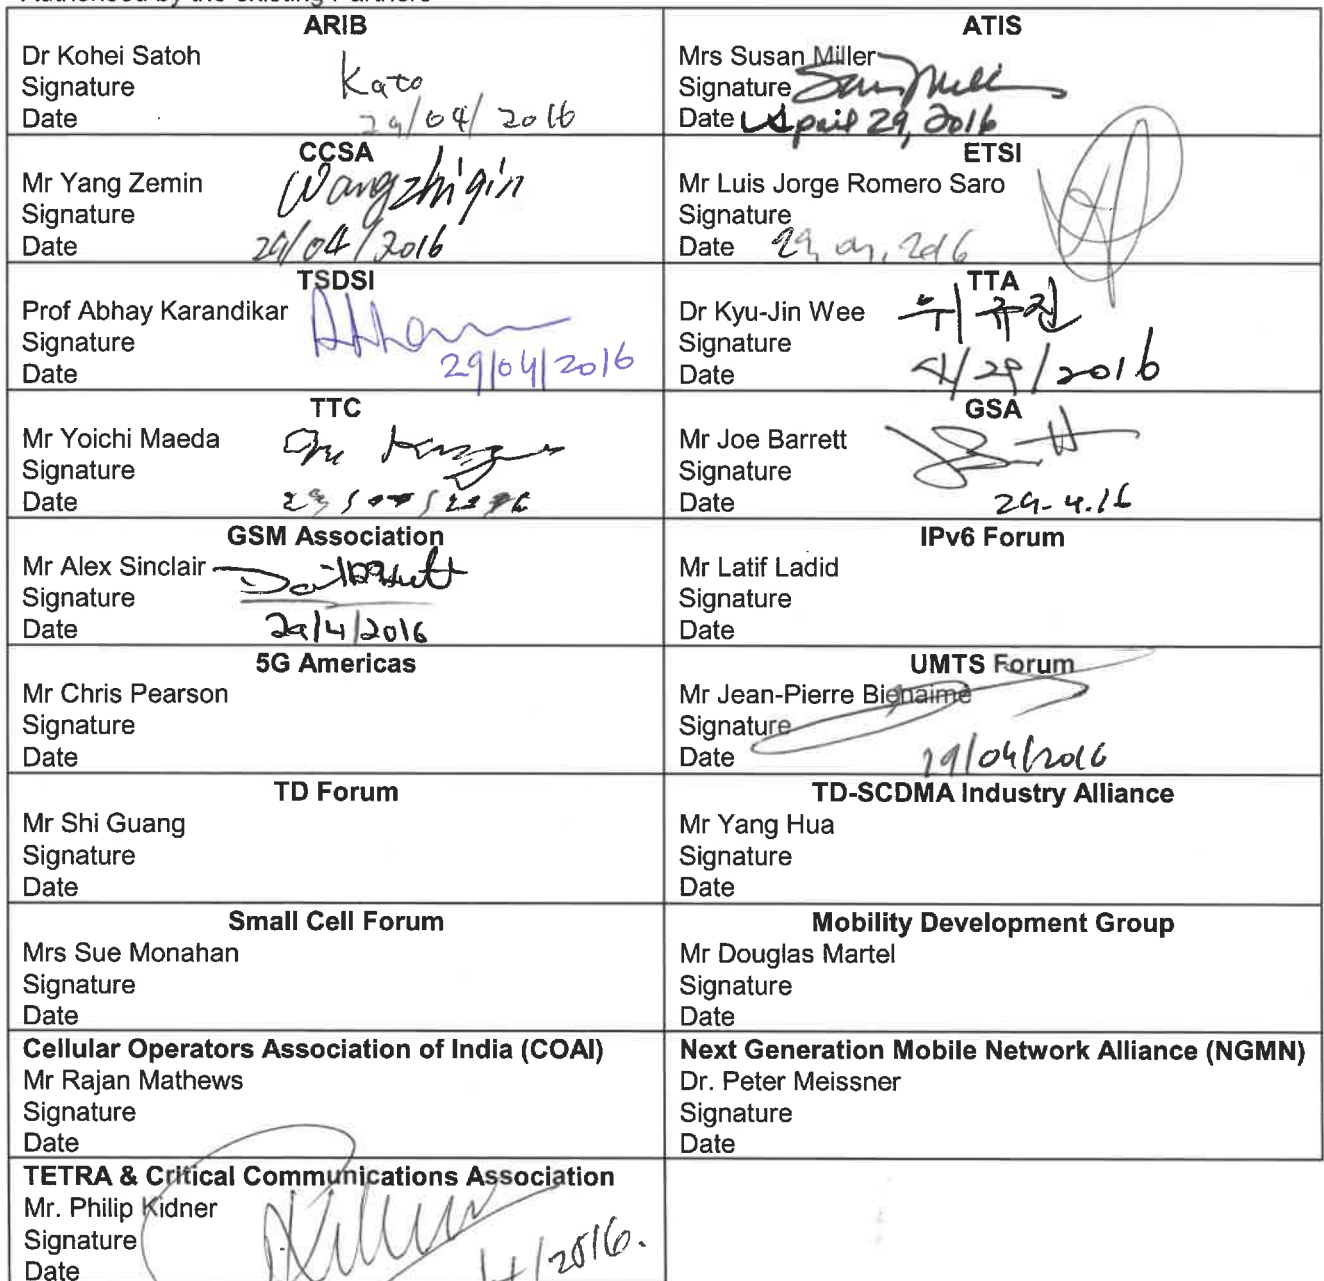 Authorised by the existing Partners
ARIB
Dr Kohei Satoh
Signature Kato
Date 29/04/2016
ATIS
Mrs Susan Miller
Signature
Date April 29, 2016
CCSA
Mr Yang Zemin
Signature Wangzhiqin
Date 29/04/2016
ETSI
Mr Luis Jorge Romero Saro
Signature
Date
TSDSI
Prof Abhay Karandikar
Signature
Date 29/04/2016
TTA
Dr Kyu-Jin Wee 위규진
Signature
Date 4/29/2016
TTC
Mr Yoichi Maeda
Signature
Date
GSA
Mr Joe Barrett
Signature
Date 29-4.16
GSM Association
Mr Alex Sinclair
Signature
Date 29/4/2016
IPv6 Forum
Mr Latif Ladid
Signature
Date
5G Americas
Mr Chris Pearson
Signature
Date
UMTS Forum
Mr Jean-Pierre Bienaimé
Signature
Date 29/04/2016
TD Forum
Mr Shi Guang
Signature
Date
TD-SCDMA Industry Alliance
Mr Yang Hua
Signature
Date
Small Cell Forum
Mrs Sue Monahan
Signature
Date
Mobility Development Group
Mr Douglas Martel
Signature
Date
Cellular Operators Association of India (COAI)
Mr Rajan Mathews
Signature
Date
Next Generation Mobile Network Alliance (NGMN)
Dr. Peter Meissner
Signature
Date
TETRA & Critical Communications Association
Mr. Philip Kidner
Signature
Date /2016.